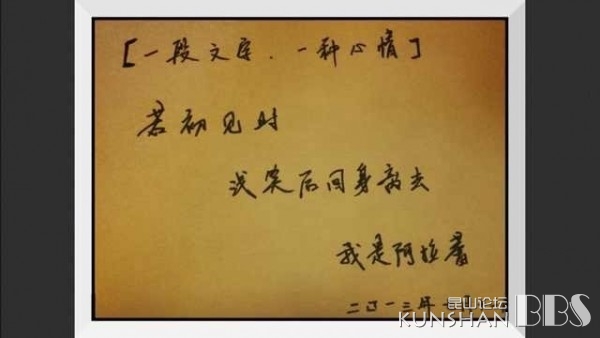 [一段文字.一种心情]
若初见时
浅笑后回身离去
我是阿拉
二〇一三年
昆山论坛
KUNSHAN BBS